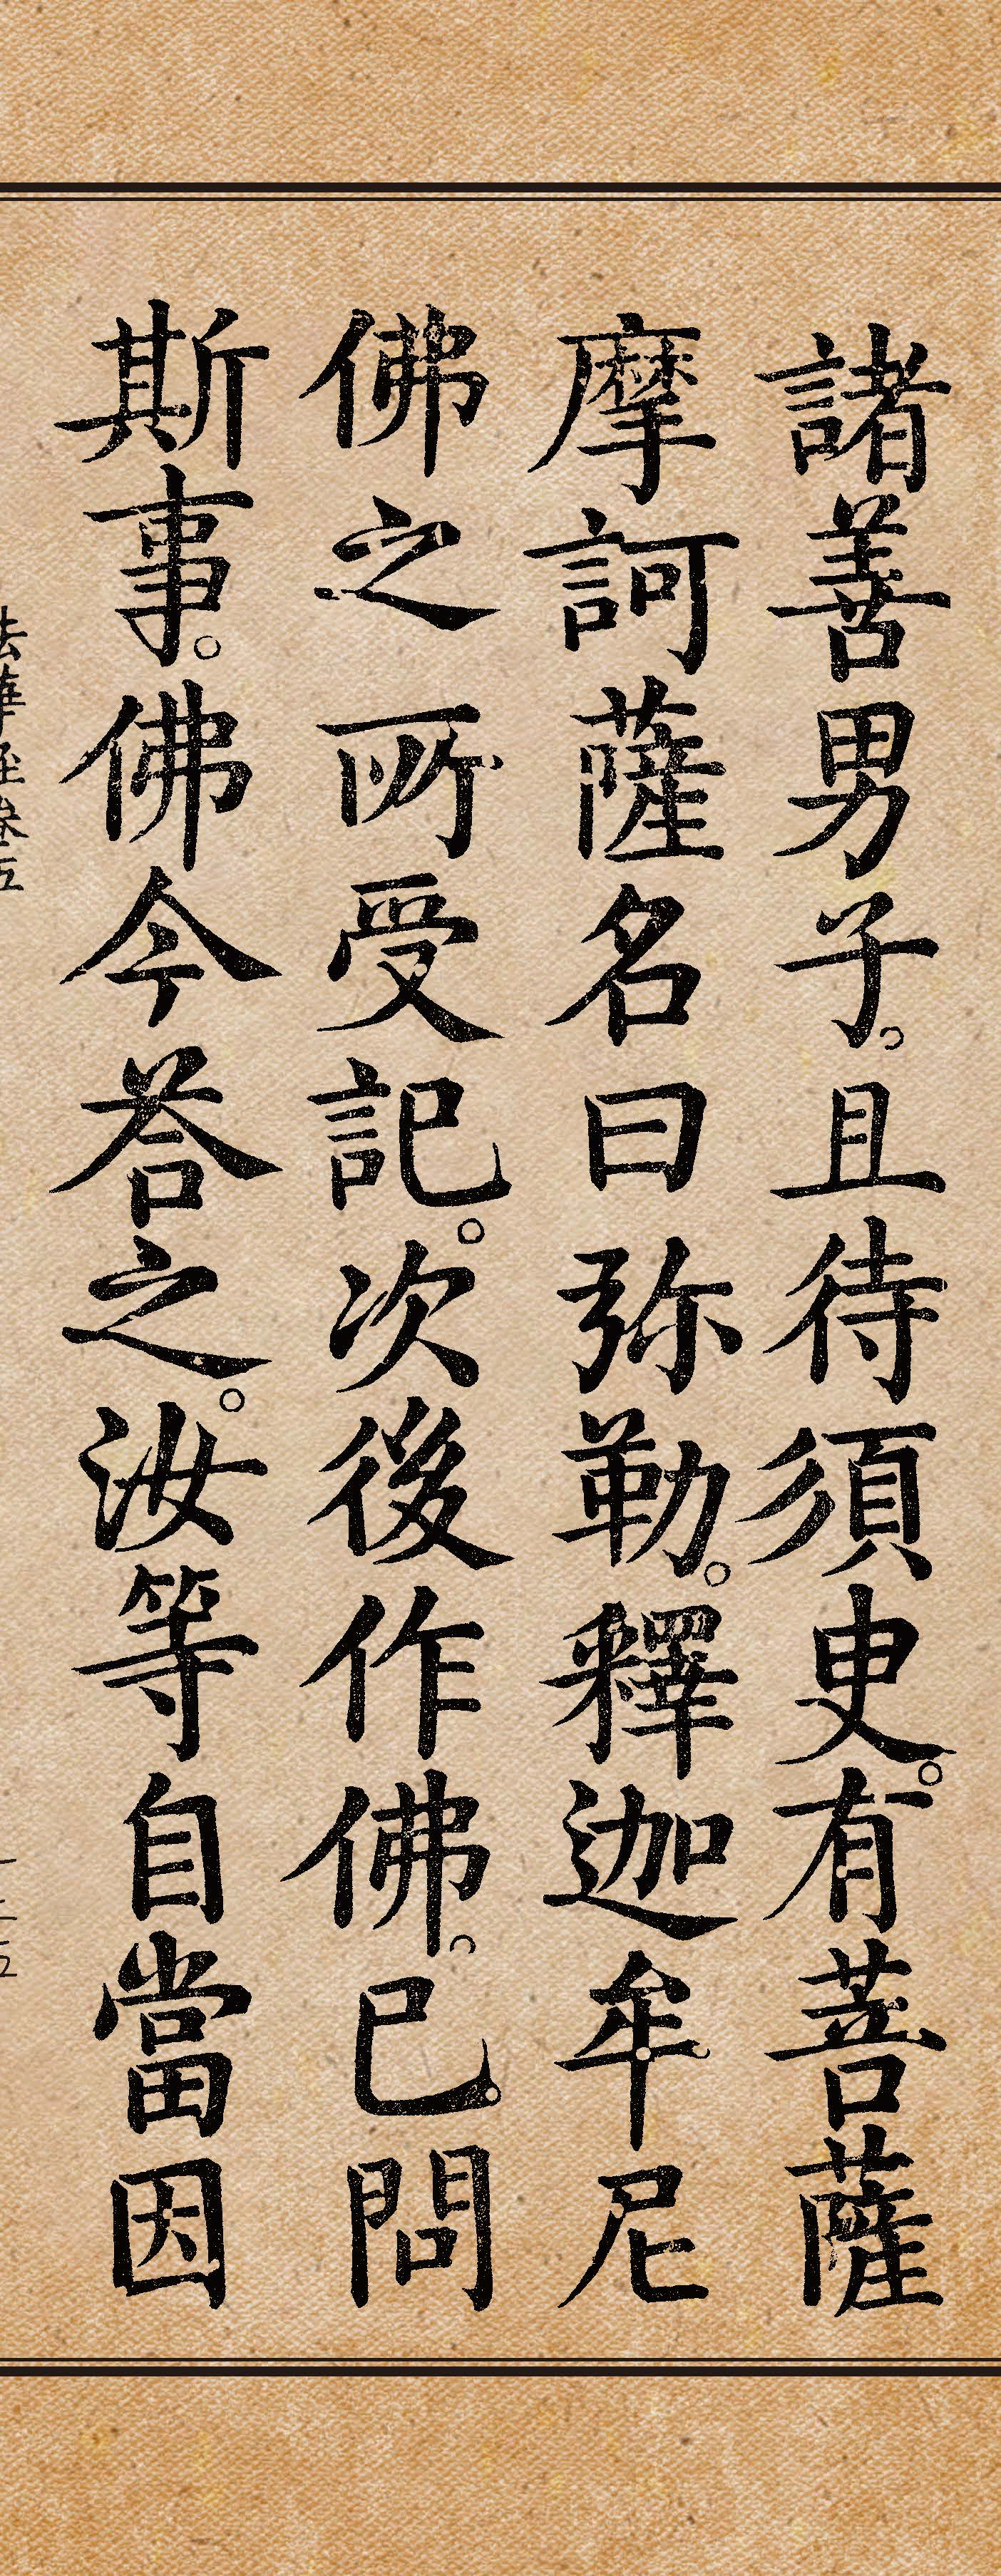 諸善男子。且待須臾。有菩薩
摩訶薩名曰弥勒。釋迦牟尼
佛之所受記。次後作佛。已問
斯事。佛今荅之。汝等自當因